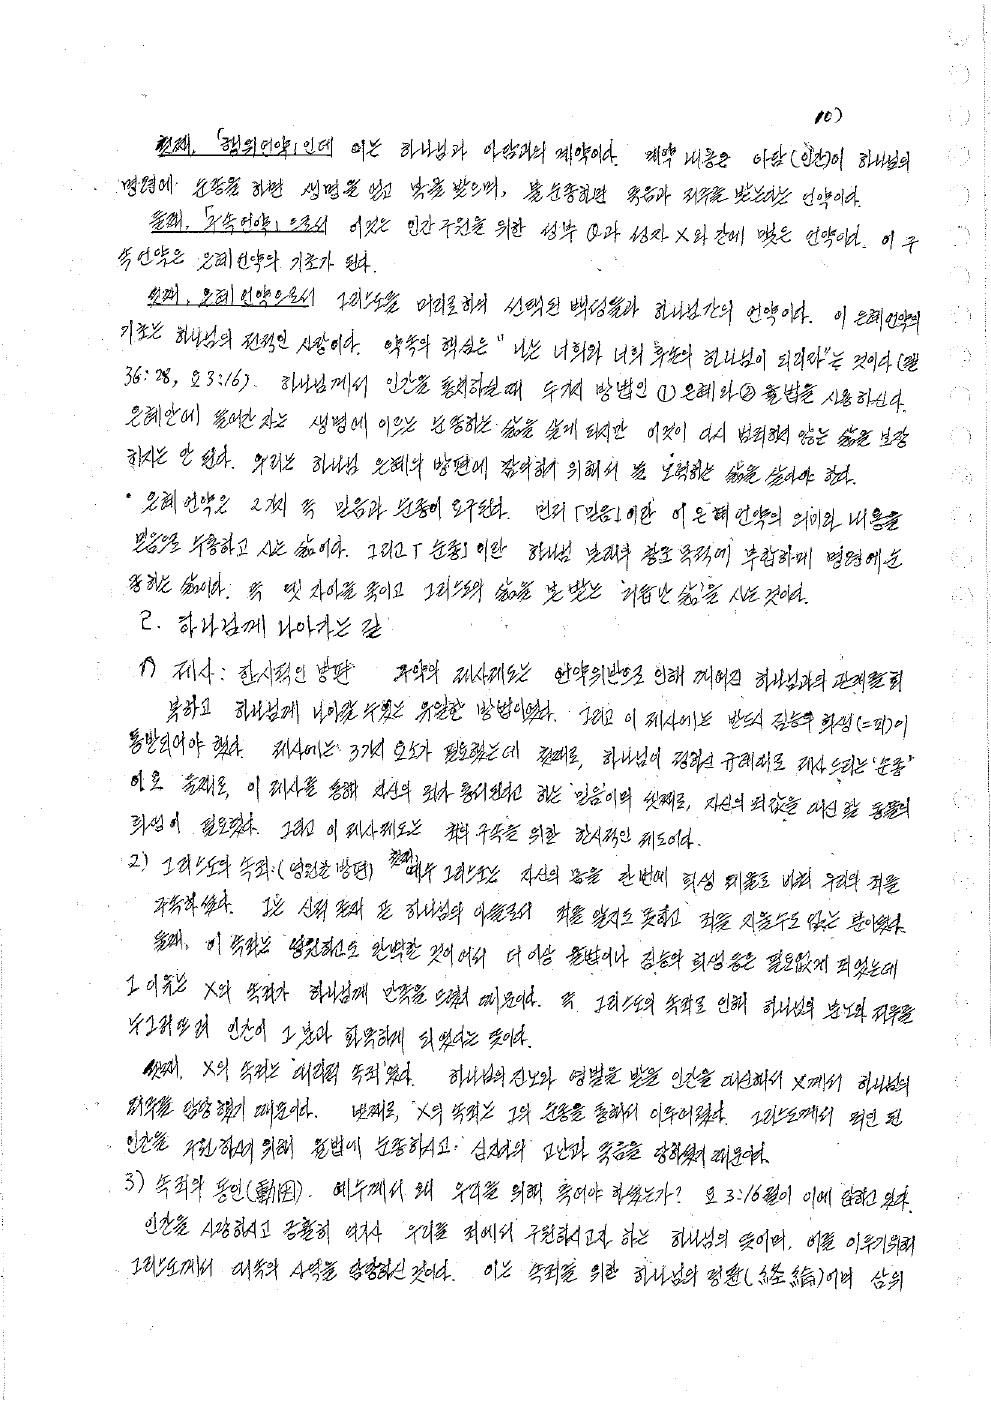 10)
첫째, 「행위언약」인데 이는 하나님과 아담과의 계약이다. 계약 내용은 아담(인간)이 하나님의
명령에 순종을 하면 생명을 얻고 복을 받으며, 불순종하면 죽음과 저주를 받는다는 언약이다.
둘째, 「구속언약」으로서 이것은 인간구원을 위한 성부 과 성자 X와 간에 맺은 언약이다. 이 구
속언약은 은혜언약의 기초가 된다.
셋째, 은혜언약으로서 그리스도를 머리로하여 선택된 백성들과 하나님간의 언약이다. 이 은혜언약의
기초는 하나님의 전적인 사랑이다. 약속의 핵심은 "나는 너희와 너희 후손의 하나님이 되리라"는 것이다(겔
36:28, 요3:16). 하나님께서 인간을 통치하실때 두가지 방법인 ① 은혜와 ② 율법을 사용하신다.
은혜안에 들어간 자는 생명에 이르는 순종하는 삶을 살게 되지만 이것이 다시 범죄하지 않는 삶을 보장
하지는 안 된다. 우리는 하나님 은혜의 방편에 참여하기 위해서 늘 노력하는 삶을 살아야 한다.
• 은혜언약은 2가지 즉 믿음과 순종이 요구된다. 먼저 「믿음」이란 이 은혜언약의 의미와 내용을
믿음으로 수용하고 사는 삶이다. 그리고 「순종」이란 하나님 나라의 목적에 부합하며 명령에 순
종하는 삶이다. 즉 옛 자아를 죽이고 그리스도의 삶을 본받는 '거듭난 삶'을 사는 것이다.
2. 하나님께 나아가는 길
1) 제사: 한시적인 방편 구약의 제사제도는 언약위반으로 인해 깨어진 하나님과의 관계를 회
복하고 하나님께 나아갈 수 있는 유일한 방법이었다. 그리고 이 제사에는 반드시 짐승의 희생(=피)이
동반되어야 했다. 제사에는 3가지 요소가 필요했는데 첫째로, 하나님이 정하신 규례대로 제사드리는 '순종'
이요 둘째로, 이 제사를 통해 자신의 죄가 용서된다고 하는 '믿음'이며 셋째로, 자신의 죄값을 대신할 동물의
희생이 필요했다. 그리고 이 제사제도는 구속을 위한 한시적인 제도이다.
2) 그리스도의 속죄: (영원한 방편) 첫째 예수 그리스도는 자신의 몸을 단번에 희생 제물로 바쳐 우리의 죄를
구속하셨다. 그는 신적 존재 곧 하나님의 아들로서 죄를 알지도 못하고 죄를 지을수도 없는 분이였다.
둘째, 이 속죄는 영원하고도 완벽한 것이어서 더 이상 율법이나 짐승의 희생 등은 필요없게 되었는데
그 이유는 X의 속죄가 하나님께 만족을 드렸기 때문이다. 즉 그리스도의 속죄로 인해 하나님의 분노와 저주를
누그러뜨려 인간이 그 분과 화목하게 되었다는 뜻이다.
셋째, X의 속죄는 '대리적 속죄'였다. 하나님의 진노와 형벌을 받을 인간을 대신해서 X께서 하나님의
저주를 담당했기 때문이다. 넷째로, X의 속죄는 그의 순종을 통해서 이루어졌다. 그리스도께서 죄인 된
인간을 구원하시기 위해 율법에 순종하시고 십자가의 고난과 죽음을 당하셨기 때문이다.
3) 속죄의 동인(動因). 예수께서 왜 우리를 위해 죽어야 하셨는가? 요 3:16절이 이에 답하고 있다.
인간을 사랑하시고 긍휼히 여기사 우리를 죄에서 구원하시고자 하는 하나님의 뜻이며, 이를 이루기위해
그리스도께서 대속의 사역을 담당하신 것이다. 이는 속죄를 위한 하나님의 경륜(経綸)이며 삼위